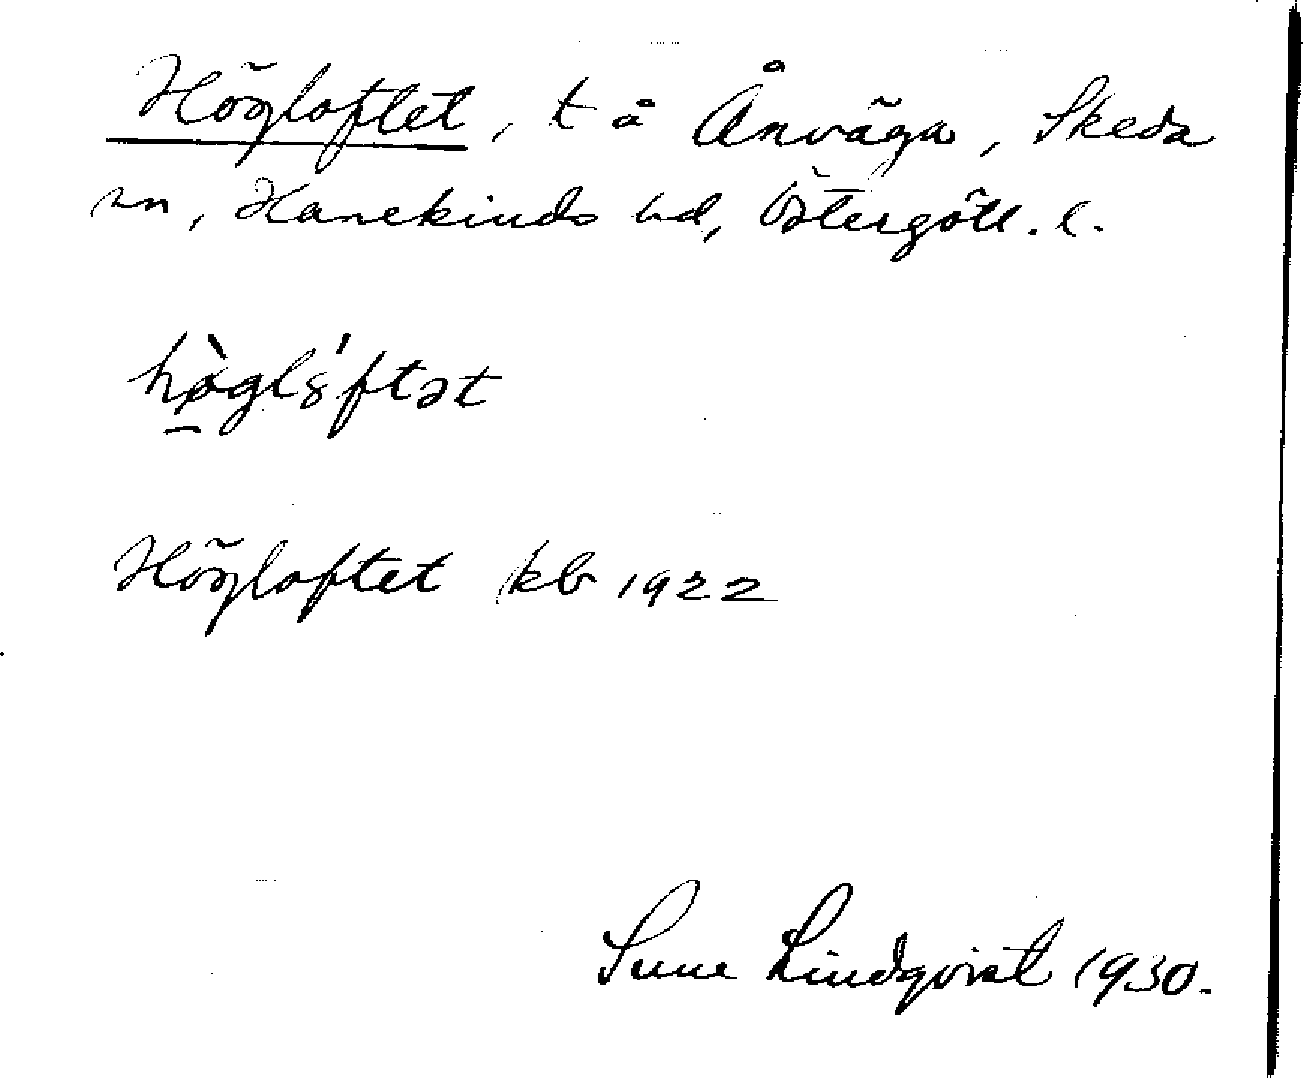 Högloftet, t å Ånväga, Skeda
sn, Hanekinds hd, Östergötl. l.
hø̀glȣ́ftət
Högloftet kb 1922
Sune Lindqvist 1930.